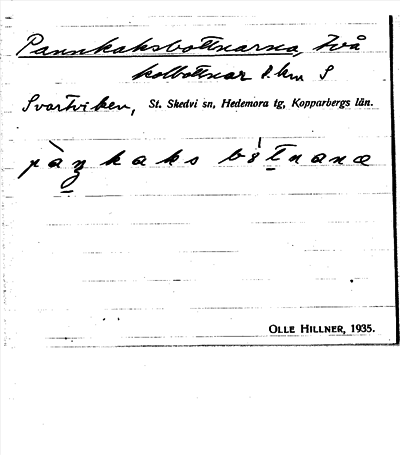 Pannkaksbottnarna, två
kolbottnar 8 km S
Svartviken, St. Skedvi sn, Hedemora tg, Kopparbergs län.
kaks
OLLE HILLNER, 1935.